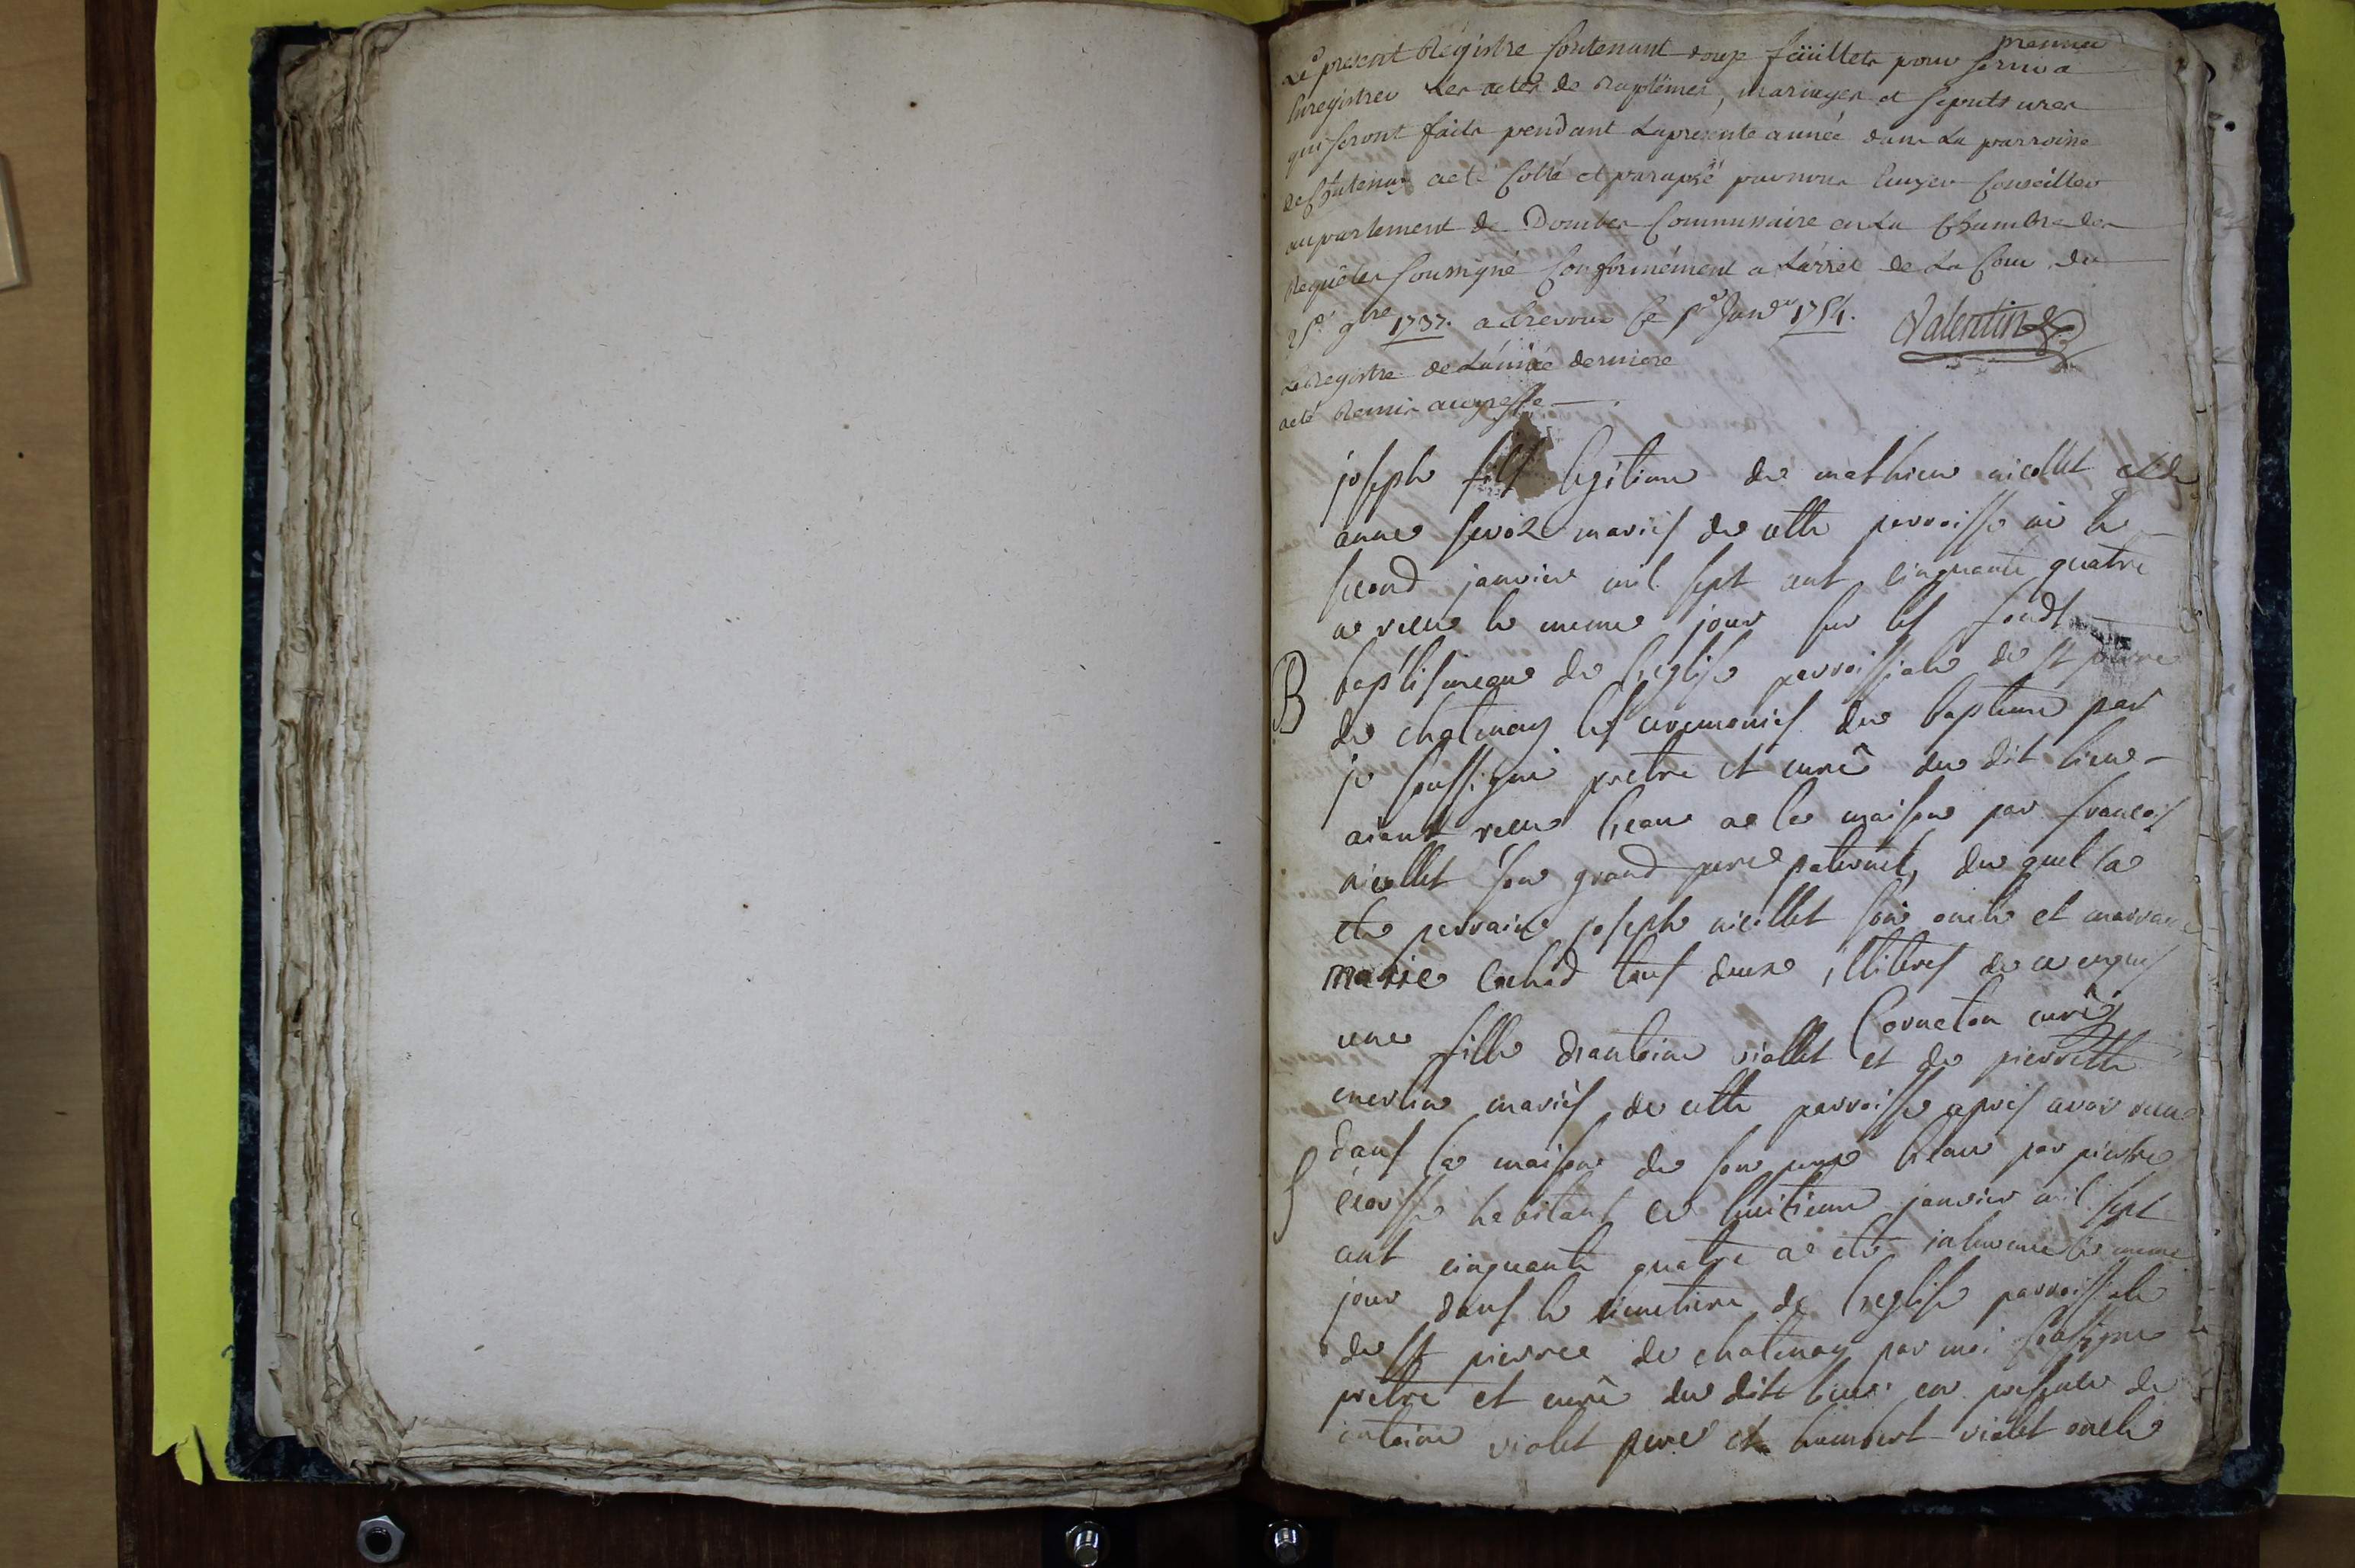 premier
Le présent Régistre Contenant douze feüillets pour servir a
Enregistrer Les actes de Baptêmes, mariages et Sepultures
qui Seront faits pendant La présente année dans La parroisse
de Chatenay a eté Cotté et paraphé par nous Ecuyer Conseiller
au parlement de Dombes Commissaire en La Chambre des
Requêtes Soussigné Conformément a L'arrêt de La Cour du
9bre 1737. a Trevoux Ce 1er Janer 1754. Valentin
Le Registre de L'année derniere
a eté Remis au greffe
joseph fils legitime de mathieu nicollet et de
anne maries de cette parroisse né le
second janvier mil sept cent cinquante quatre
a recue le meme jour sur les fonds
baptismeaux de l'eglise parroissiale de st pierre
B
de chatenay les ceremonies du bapteme par
je soussigné pretre et curé du dit lieu
aiant recue l'eau a la maison par francois
nicollet son grand pere paternel, du quel a
ete parrain joseph nicollet son oncle et marraine
marie tous deux illiteres de ce enquis
Corneton curé
une fille d'antoine viollet et de pierrette
merlin maries de cette parroisse apres avoir recue
dans la maison de son pere l'eau par pierre
S
habitant le huitieme janvier mil sept
cent cinquante quatre a eté inhumée le meme
jour dans le cimetiere de l'eglise parroissiale
de st pierre de chatenay par moi soussigné
pretre et curé du dit lieu en presence de
antoine violet pere et humbert violet oncle